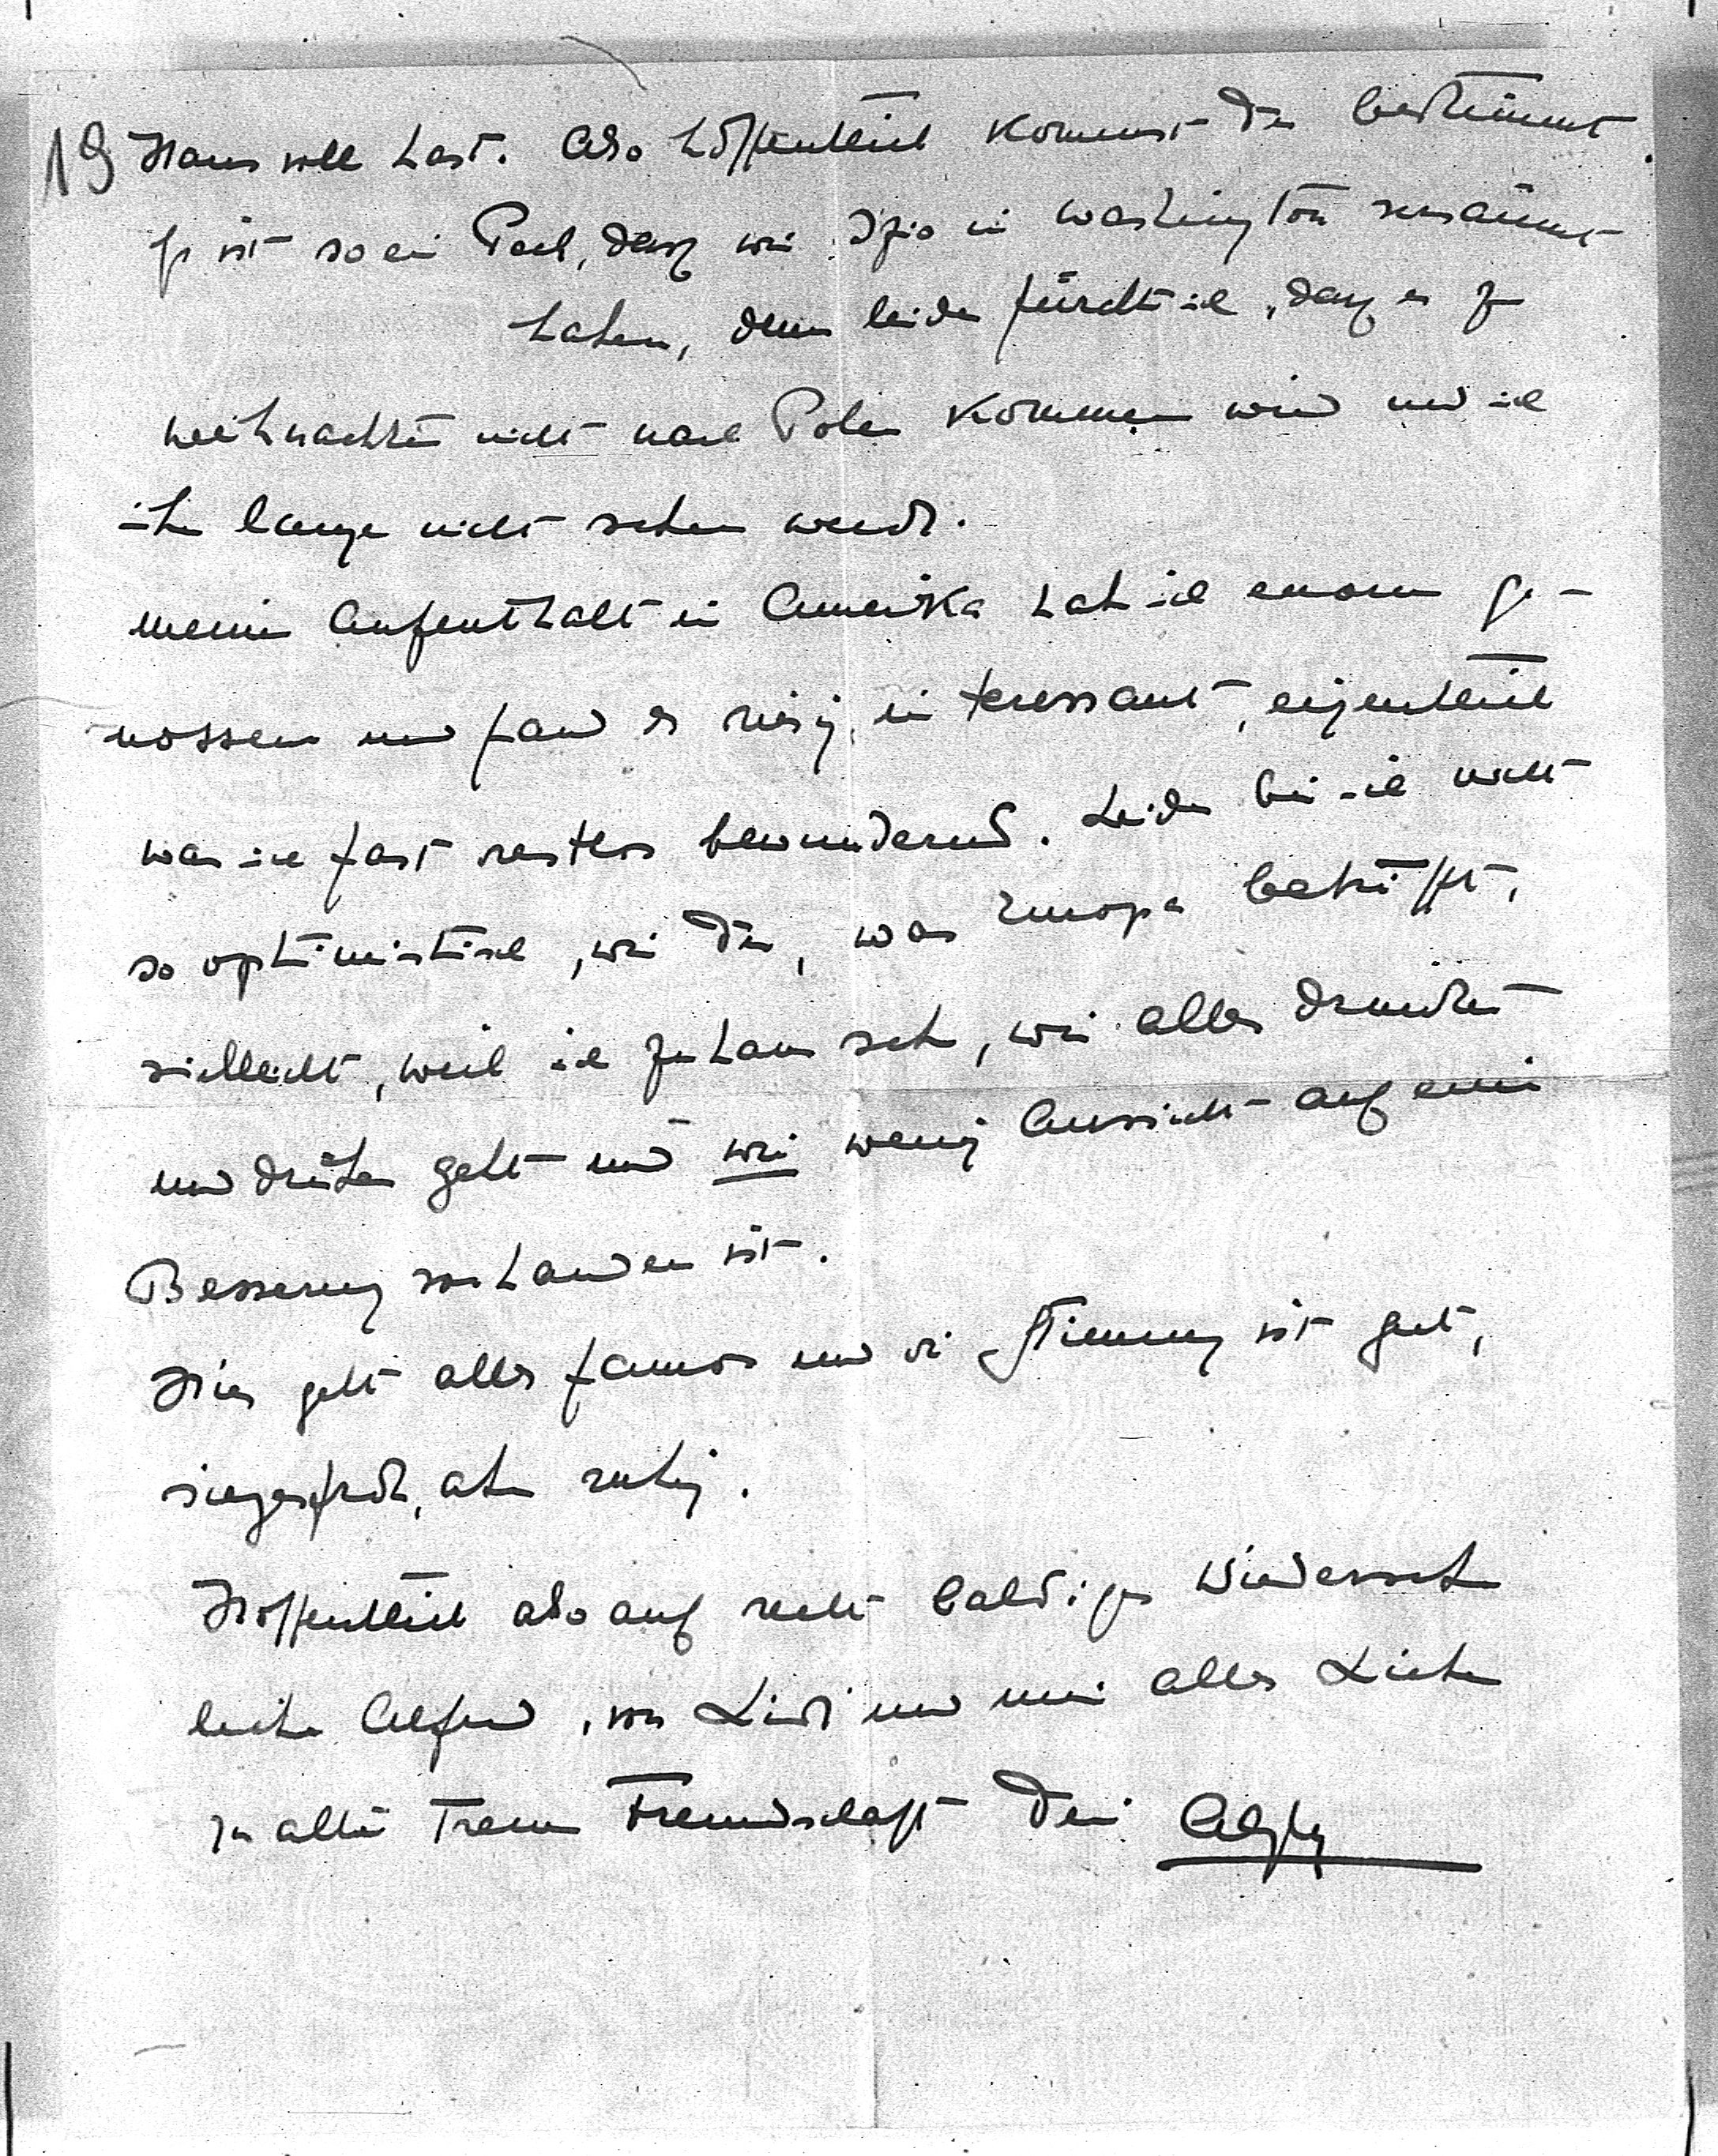 19 Haus voll hast. Also hoffentlich kommst Du bestimmt.
Es ist so ein Pech, dasz wir in Washington versäumt
haben, denn leider fürchte ich, dasz er zu
Weihnachten nicht nach Polen kommen wird und ich
ihn lange nicht sehen werde.
Meinen Aufenthalt in Amerika hab ich enorm ge-
nossen und fand es riesig interessant, eigentlich
war ich fast restlos bewundernd. Leider bin ich nicht
so optimistisch, wie Du, was Europa betrifft,
vielleicht, weil ich zuhaus seh, wie alles drunter
und drüber geht und wie wenig Aussicht auf eine
Besserung vorhanden ist.
Hier geht alles famos und die Stimmung ist gut,
siegesfroh, aber ruhig.
Hoffentlich also auf recht baldiges Wiedersehen
lieber Alfred, von und mir alles Liebe
In alter treuer Freundschaft Dein